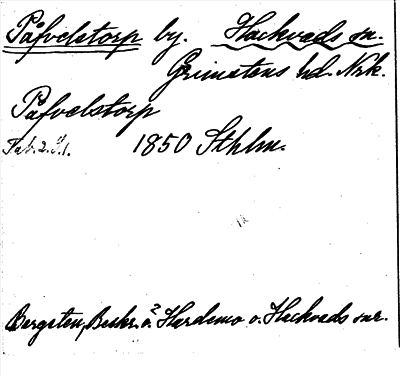 Påfvelstorp by. Hackvads sn.
Grimstens hd. Nrk.
Påfvelstorp
1850 Sthlm.
Bergsten, Beskr. Hardemo o. Hackvads snr.